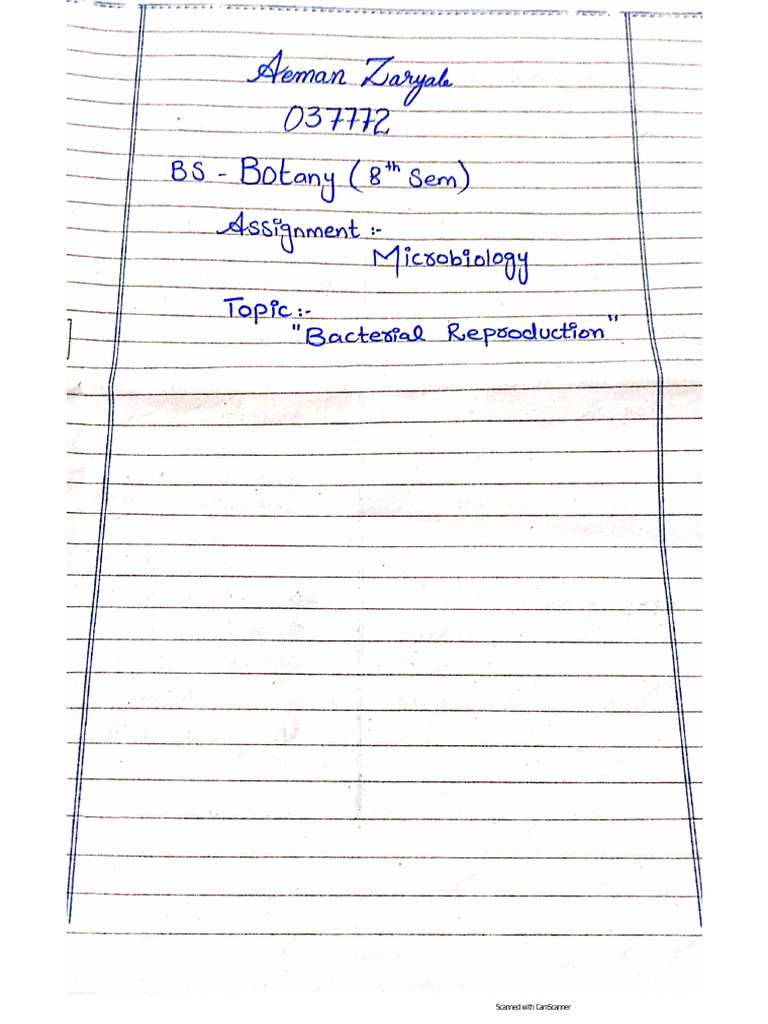 Aeman Zaryab
037772
BS - Botany ( 8th Sem)
Assignment :-
Microbiology
Topic:-
"Bacterial Reproduction"
Scanned with CamScanner